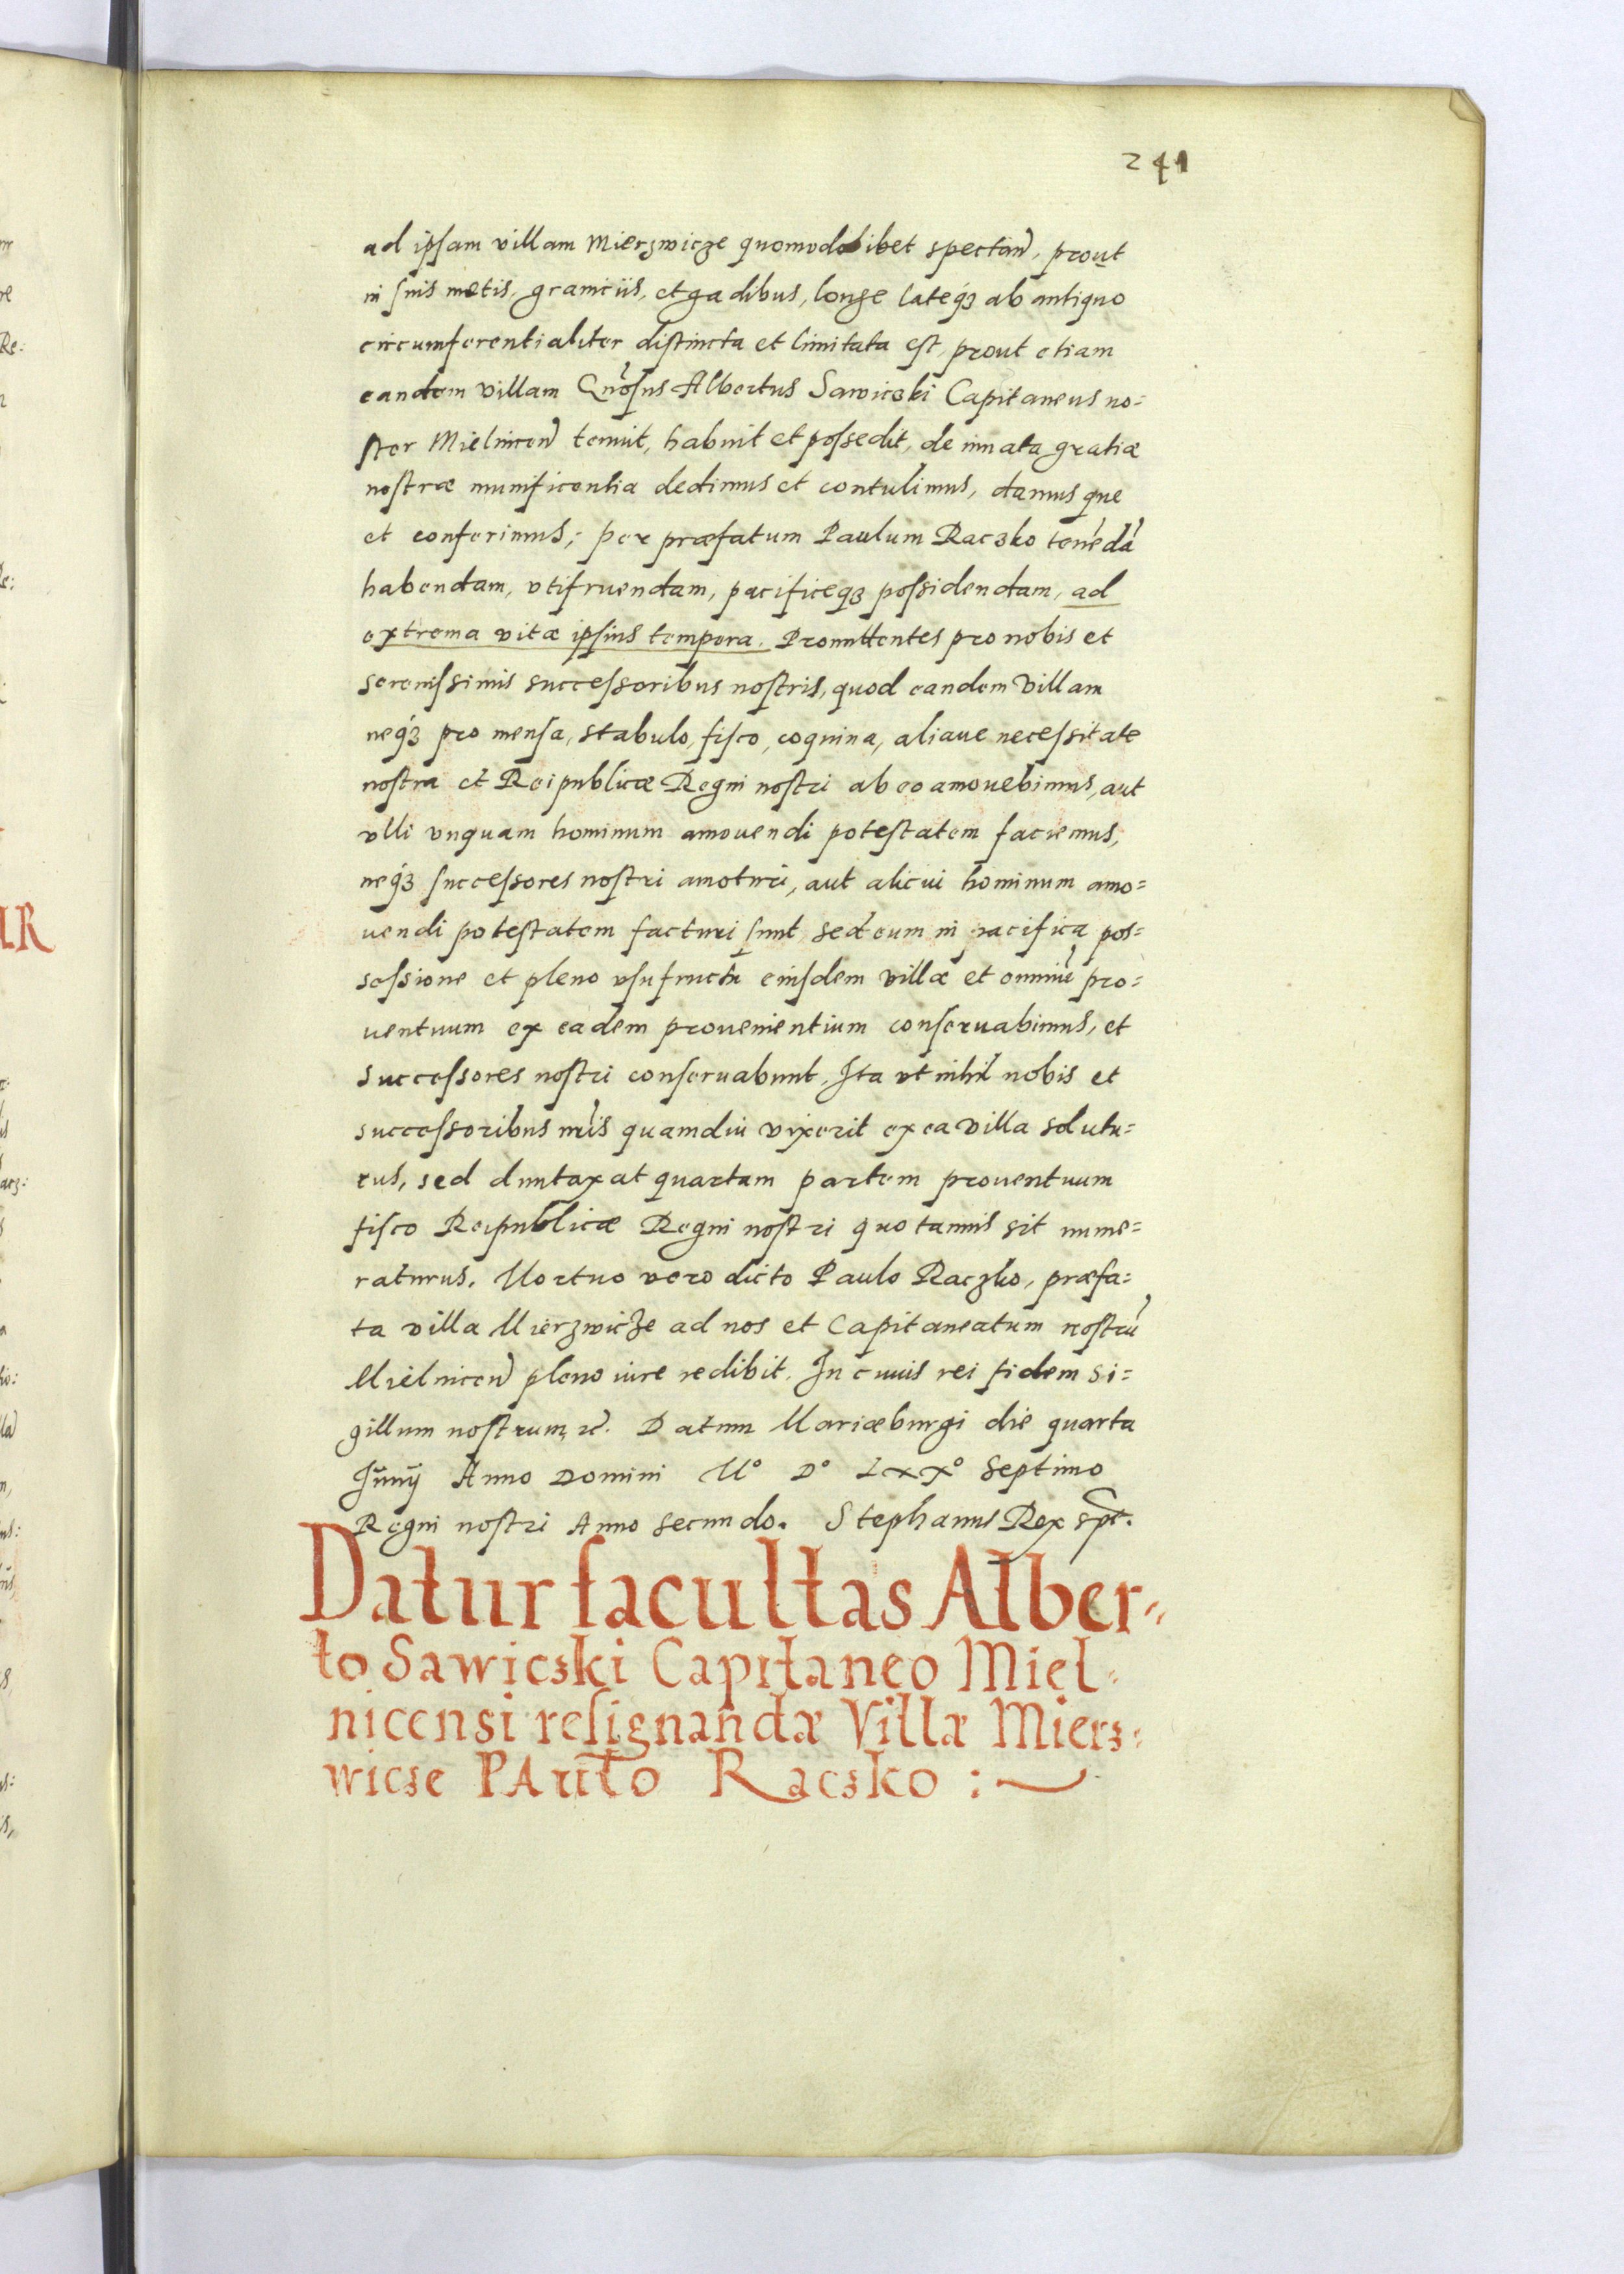 241
ad ipsam villam Mierzwicze quomodolibet spectan̄, prout
in suis metis, graniciis, et gadibus, longe lateq́ꝫ ab antiquo
circumferentialiter distincta et limitata est, prout etiam
eandem villam Gn̄rosus Albertus Sawiczki Capitaneus no=
ster Mielnicen̄ tenuit, habuit et possedit, de innata gratiæ
nostræ munificentia dedimus et contulimus, damusque
et conferimus; per præfatum Paulum Raczko tenēdā
habendam, vtifruendam, pacificeqꝫ possidendam, ad
extrema vitæ ipsius tempora. Promittentes pro nobis et
serenissimis successoribus nostris, quod eandem villam
neq́ꝫ pro mensa, stabulo, fisco, coquina, aliaue necessitate
nostra et Reipublicæ Regni nostri ab eo amouebimus, aut
vlli vnquam hominum amouendi potestatem faciemus,
neq́ꝫ successores nostri amoturi, aut alicui hominum amo=
uendi potestatem facturi sunt, sed eum in pacifica pos=
sessione et pleno vsufructu eiusdem villæ et omniū pro=
uentuum ex eadem prouenientium conseruabimus, et
successores nostri conseruabunt. Ita vt nihil nobis et
successoribus nr̄is quamdiu vixerit ex ea villa solutu=
rus, sed duntaxat quartam partem prouentuum
fisco Reipublicæ Regni nostri quotannis sit nume=
raturus. Mortuo vero dicto Paulo Raczko, præfa=
ta villa Mierzwicze ad nos et Capitaneatum nostrū
Mielnicen̄ pleno iure redibit. In cuius rei fidem si=
gillum nostrum ꝛc̄. Datum Mariæburgi die quarta
Junÿ Anno Domini M° D° LXX° Septimo
Regni nostri Anno secundo. Stephanus Rex sp̄t.
Datur facultas Alber=
to Sawicski Capitaneo Miel=
nicensi resignandæ Villæ Miers=
wicse PAulo Racsko :